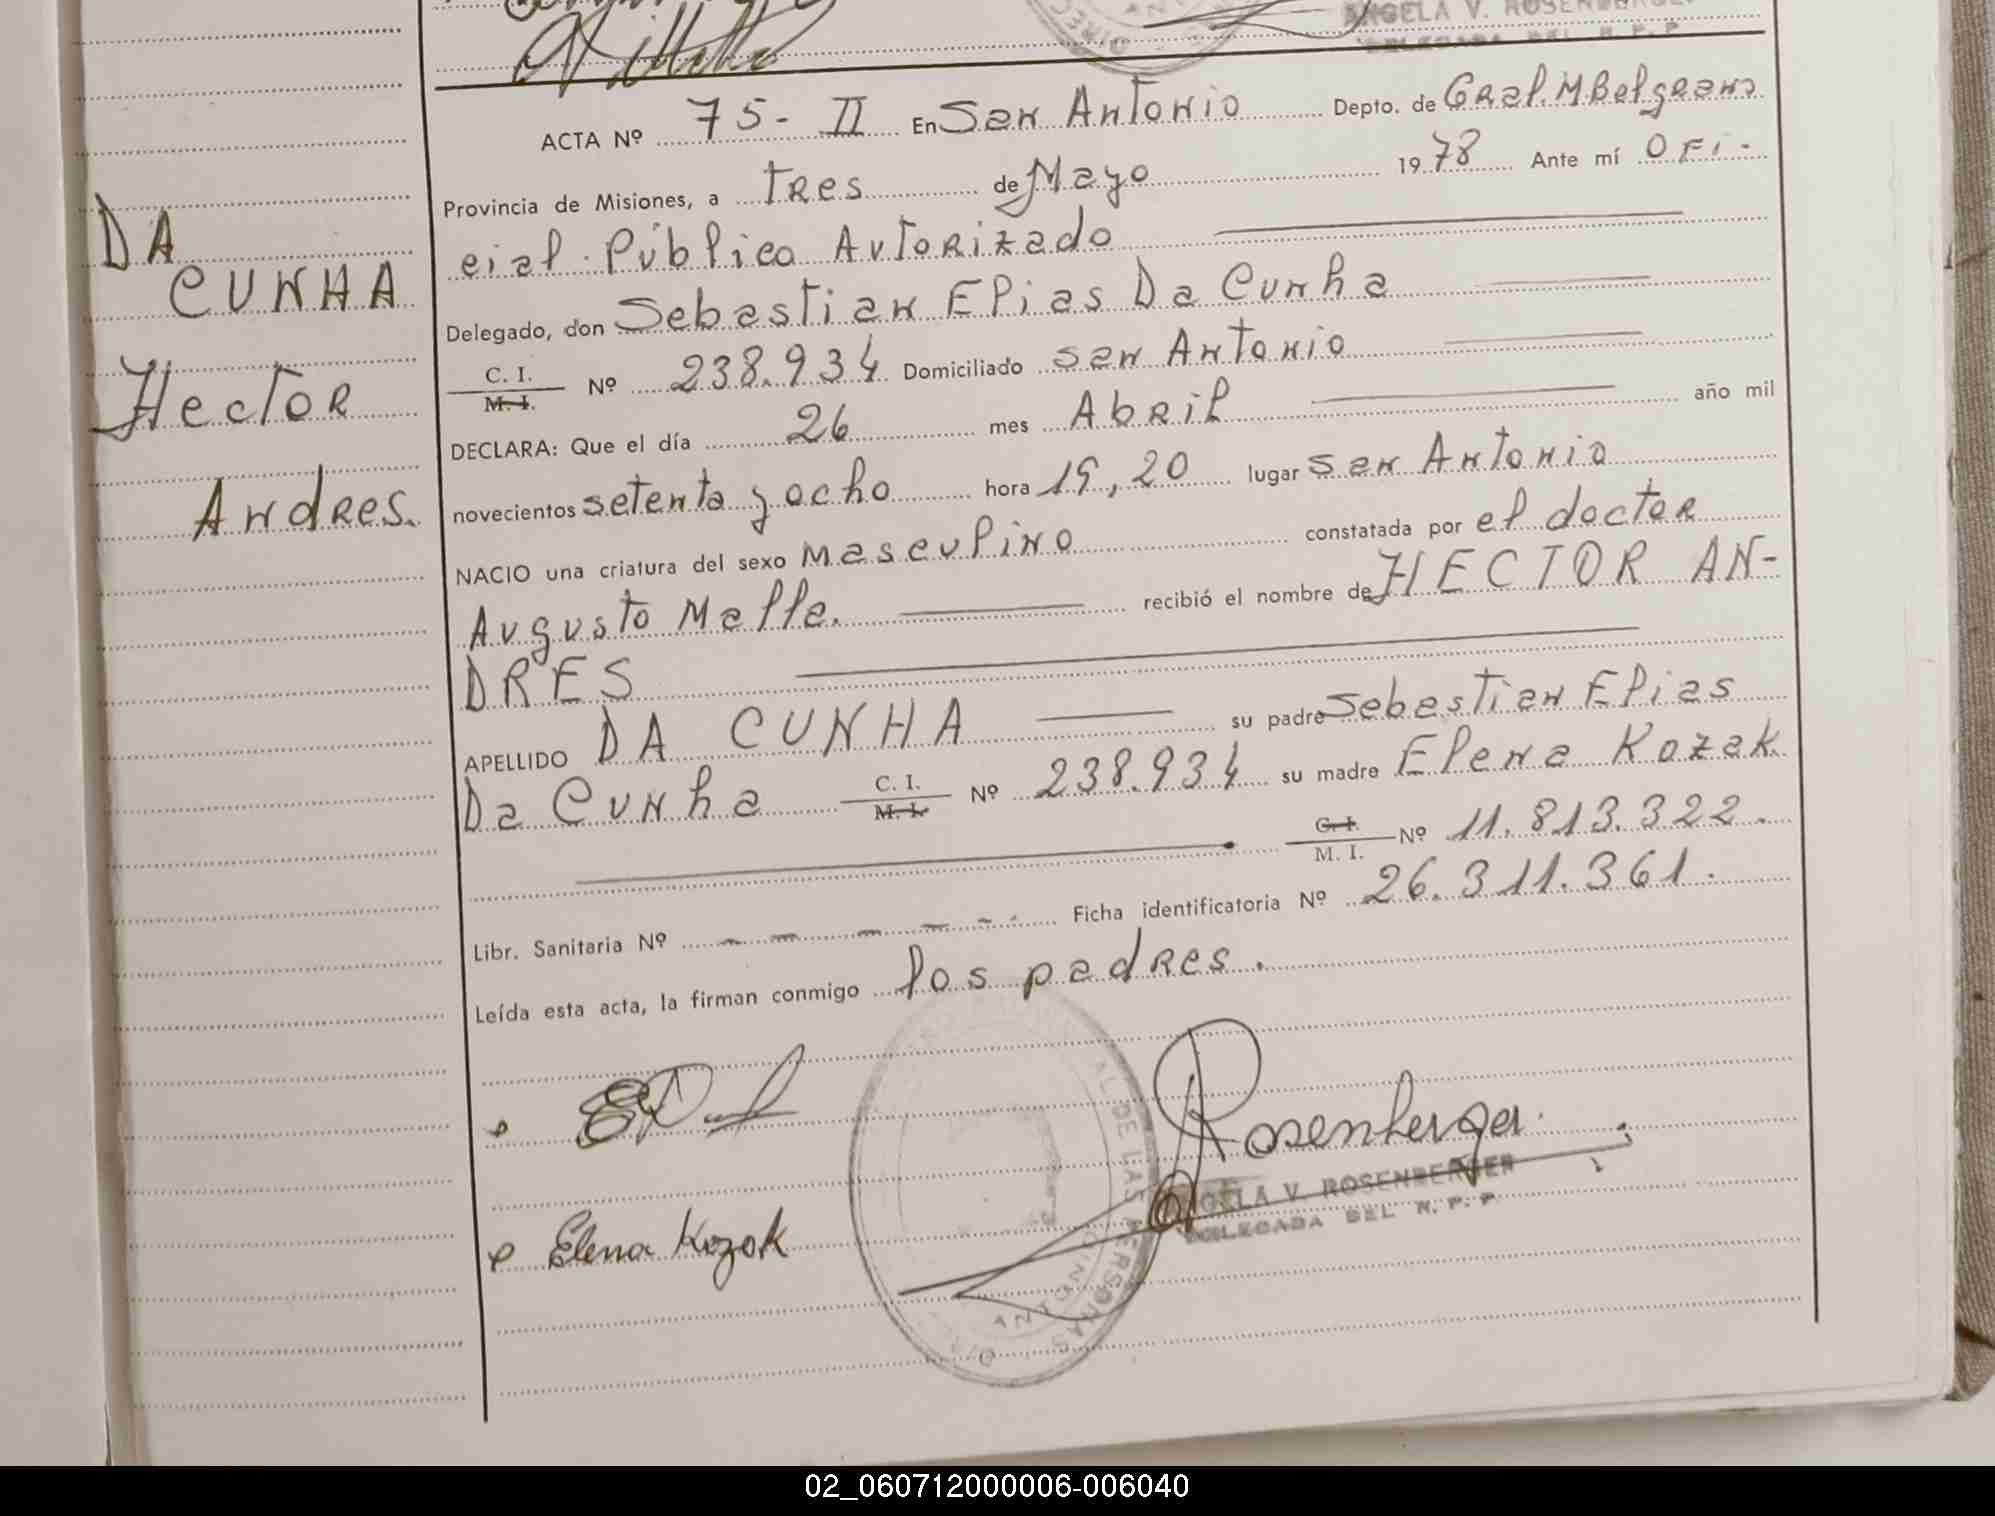 ANGELA V. ROSENBERGER
DELEGADA DEL R. P. P.
ACTA Nº 75- II En San Antonio Depto. de Gral. M Belgrano
Provincia de Misiones, a Tres de Mayo 1978 Ante mí Ofi-
cial Público Autorizado
Delegado, don Sebastian Elias Da Cunha
C. I.
M. I. Nº 238.934 Domiciliado San Antonio
DECLARA: Que el día 26 mes Abril año mil
novecientos setenta y ocho hora 19,20 lugar San Antonio
NACIO una criatura del sexo masculino constatada por el doctor
Augusto Melle. recibió el nombre de HECTOR AN-
DRES
APELLIDO DA CUNHA su padre Sebastian Elias
Da Cunha C. I.
M. I. Nº 238.934 su madre Elena Kozak
C. I.
M. I. Nº 11.813.322.
Libr. Sanitaria Nº - - - - - - Ficha identificatoria Nº 26.311.361.
Leída esta acta, la firman conmigo los padres.
DA
CUNHA
Hector
Andres.
Rosenberger
ANGELA V. ROSENBERGER
DELEGADA DEL R. P. P.
Elena Kozak
AL DE LAS PERSONAS
02_060712000006-006040